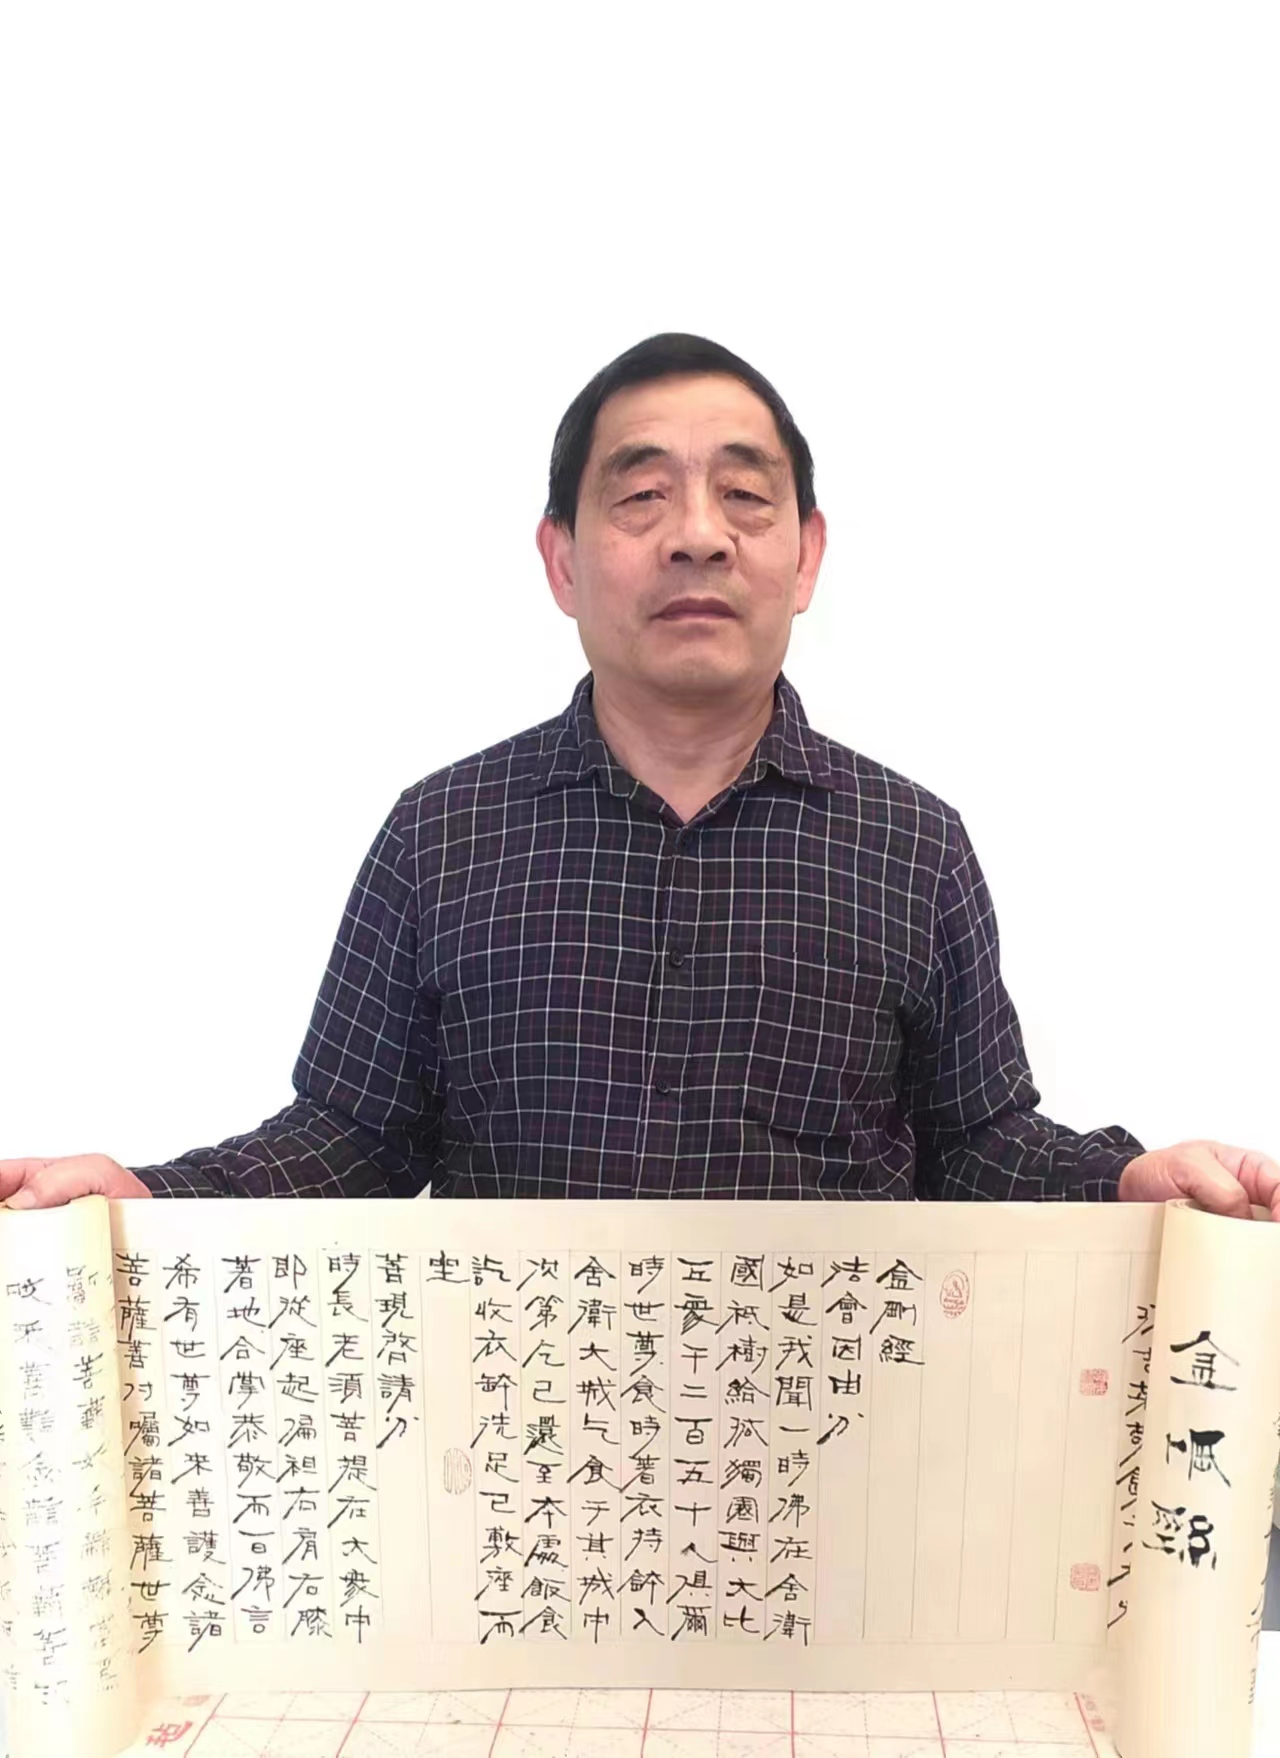 金剛經
金剛經
法會因由分
如是我聞一時佛在舍衛
國祇樹給孤獨園與大比
丘衆千二百五十人俱爾
時世尊食時著衣持鉢入
舍衛大城乞食于其城中
次第乞已還至本處飯食
訖收衣鉢洗足已敷座而
坐
善現啓請分
時長老須菩提在大衆中
即從座起偏袒右肩右膝
著地合掌恭敬而白佛言
希有世尊如來善護念諸
菩薩善付囑諸菩薩世尊